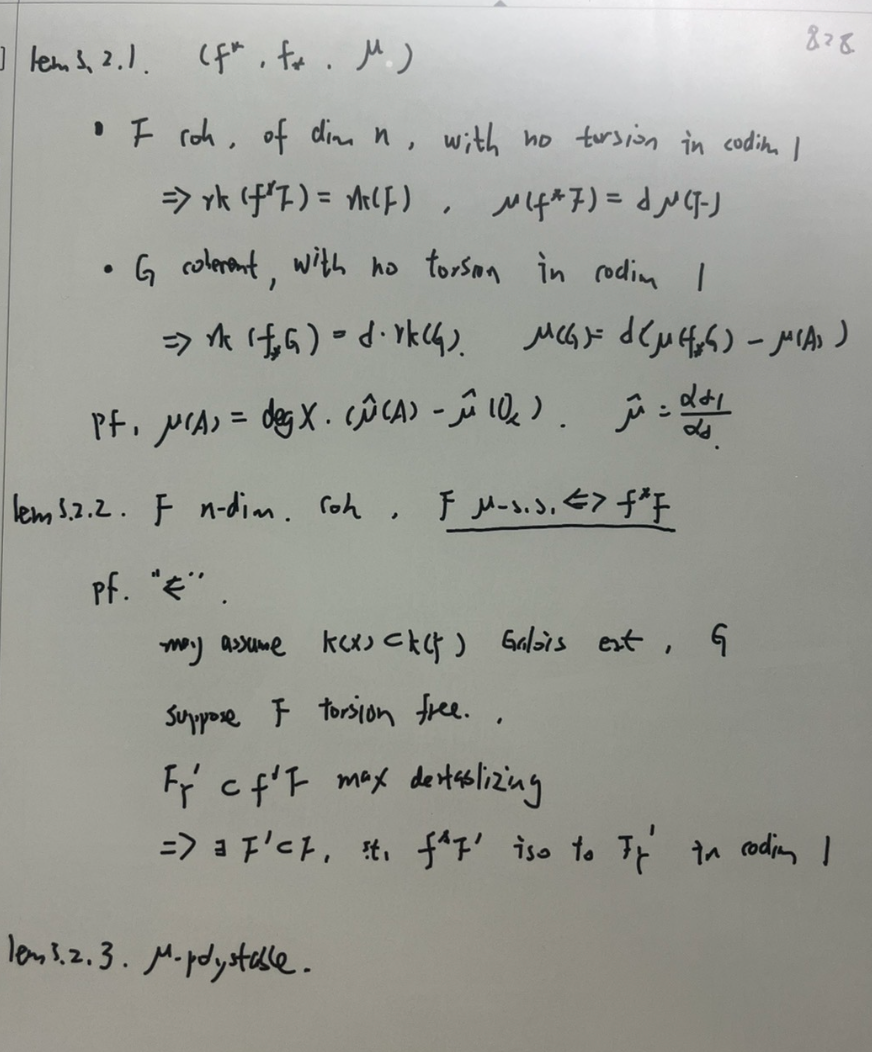 828
lem 3.2.1. (f*, f_*, μ.)
• F coh, of dim n, with no torsion in codim 1
=> rk (f*F) = rk(F), μ(f*F) = d μ(F)
• G coherent, with no torsion in codim 1
=> rk (f_*G) = d·rk(G). μ(G) = d(μ(f_*G) - μ(A))
pf. μ(A) = deg X. (μ̂(A) - μ̂(O_X)). μ̂ = αd-1/αd.
lem 3.2.2. F n-dim. coh, F μ-s.s. <=> f*F
pf. "<=".
may assume k(X) ⊂ k(Y) Galois ext, G
suppose F torsion free.,
F_Y' ⊂ f*F max destablizing
=> ∃ F' ⊂ F, st, f*F' iso to F_Y' in codim 1
lem 3.2.3. μ-polystable.